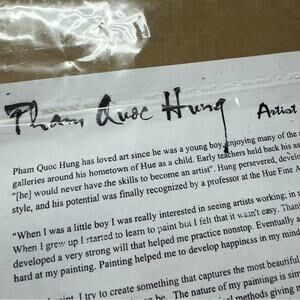 Pham Quoc Hung Artist
Pham Quoc Hung has loved art since he was a young boy, enjoying many of the
galleries around his hometown of Hue as a child. Early teachers held back his as
"[he] would never have the skills to become an artist". Hung persevered, develo
style, and his potential was finally recognized by a professor at the Hue Fine A
"When I was a little boy I was really interested in seeing artists working; in
When I grew up I started to learn to paint but I felt that it wasn't easy. Than
developed a very strong will that helped me practice nonstop. Eventually
hard at my painting. Painting helped me to develop happiness in my mind
I try to create something that captures the most beautiful
be. The nature of my paintings is sim
methods giving